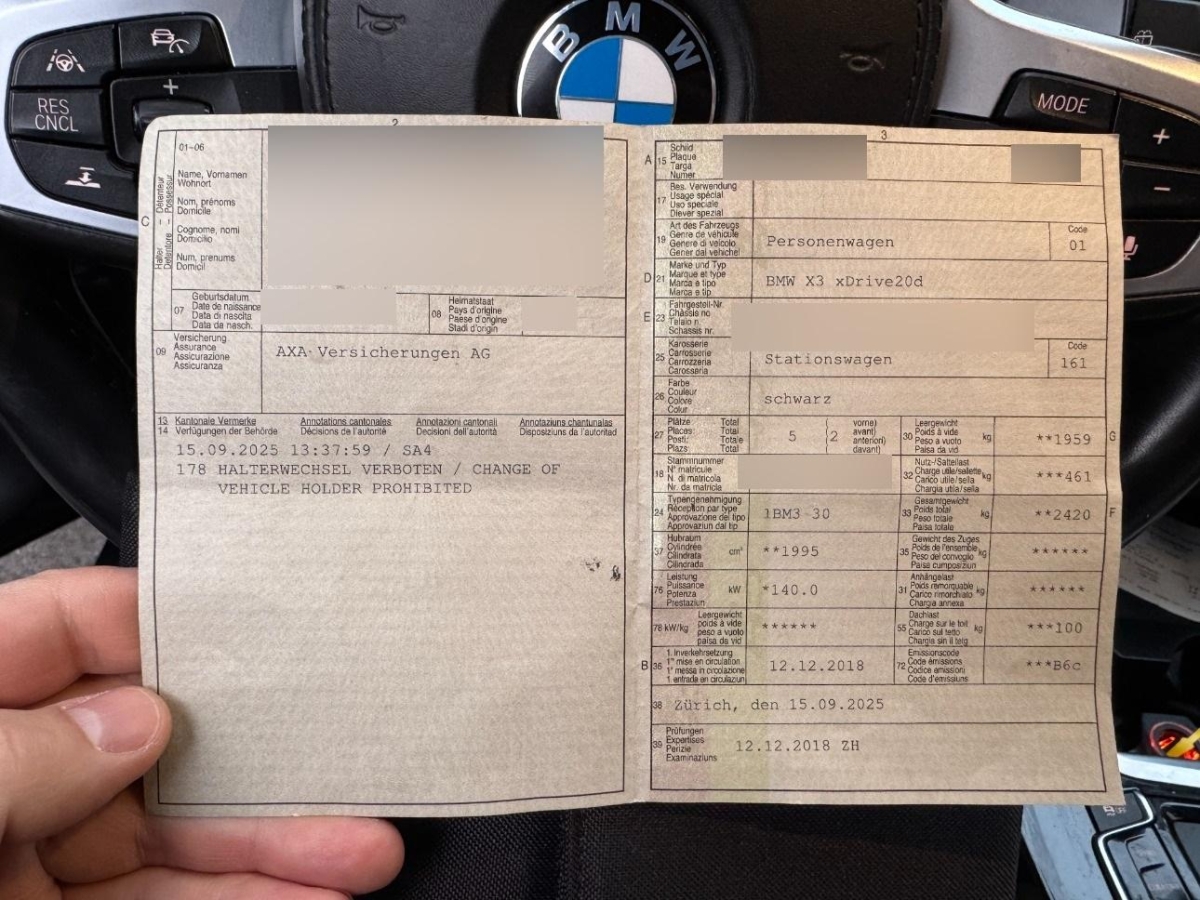 BMW
RES
CNCL
MODE
2
01-06
Name, Vornamen
Wohnort
Nom, prénoms
Domicile
Cognome, nomi
Domicilio
Num, prenums
Domicil
C
Halter – Détenteur
Detentore – Possessur
07
Geburtsdatum
Date de naissance
Data di nascita
Data da nasch.
08
Heimatstaat
Pays d'origine
Paese d'origine
Stadi d'origin
09
Versicherung
Assurance
Assicurazione
Assicuranza
AXA Versicherungen AG
13 Kantonale Vermerke Annotations cantonales Annotazioni cantonali Annotaziuns chantunalas
14 Verfügungen der Behörde Décisions de l'autorité Decisioni dell'autorità Disposiziuns da l'autoritad
15.09.2025 13:37:59 / SA4
178 HALTERWECHSEL VERBOTEN / CHANGE OF
VEHICLE HOLDER PROHIBITED
3
A 15
Schild
Plaque
Targa
Numer
17
Bes. Verwendung
Usage spécial
Uso speciale
Diever spezial
19
Art des Fahrzeugs
Genre de véhicule
Genere di veicolo
Gener dal vehichel
Personenwagen
Code
01
D 21
Marke und Typ
Marque et type
Marca e tipo
Marca e tip
BMW X3 xDrive20d
E 23
Fahrgestell-Nr.
Châssis no
Telaio n.
Schassis nr.
25
Karosserie
Carrosserie
Carrozzeria
Carosseria
Stationswagen
Code
161
26
Farbe
Couleur
Colore
Colur
schwarz
27
Plätze Total
Places Total
Posti Totale
Plazs Total
5 (2
vorne)
avant)
anteriori)
davant)
30
Leergewicht
Poids à vide
Peso a vuoto
Paisa da vid
kg
**1959
G
18
Stammnummer
N° matricule
N. di matricola
Nr. da matricla
32
Nutz-/Sattellast
Charge utile/sellette
Carico utile/sella
Chargia utila/sella
kg
***461
24
Typengenehmigung
Réception par type
Approvazione del tipo
Approvaziun dal tip
1BM3 30
33
Gesamtgewicht
Poids total
Peso totale
Paisa totala
kg
**2420
F
37
Hubraum
Cylindrée
Cilindrata
Cilindrada
cm³
**1995
35
Gewicht des Zuges
Poids de l'ensemble
Peso del convoglio
Paisa cumposiziun
kg
******
76
Leistung
Puissance
Potenza
Prestaziun
kW
*140.0
31
Anhängelast
Poids remorquable
Carico rimorchiato
Chargia annexa
kg
******
78 kW/kg
Leergewicht
poids à vide
peso a vuoto
paisa da vid
******
55
Dachlast
Charge sur le toit
Carico sul tetto
Chargia sin il tetg
kg
***100
B 36
1. Inverkehrsetzung
1re mise en circulation
1a messa in circolazione
1. entrada en circulaziun
12.12.2018
72
Emissionscode
Code émissions
Codice emissioni
Code d'emissiuns
***B6c
38
Zürich, den 15.09.2025
39
Prüfungen
Expertises
Perizie
Examinaziuns
12.12.2018 ZH